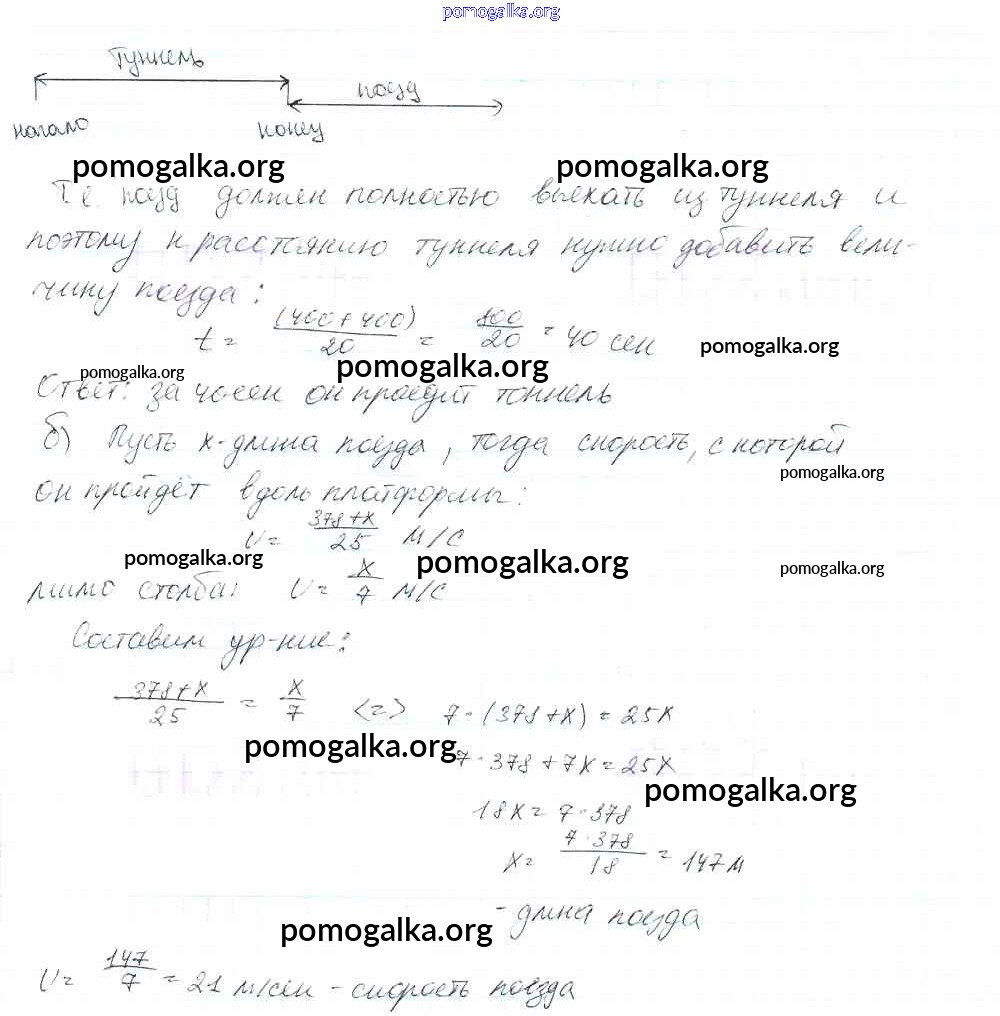 pomogalka.org
туннель
поезд
начало конец
pomogalka.org pomogalka.org
Т.е. поезд должен полностью выехать из туннеля и
поэтому к расстоянию туннеля нужно добавить вели-
чину поезда:
t = (400 + 400)/20 = 800/20 = 40 сек
pomogalka.org
pomogalka.org
pomogalka.org
Ответ: за 40 сек он проедит тоннель
б) Пусть х-длина поезда, тогда скорость, с которой
pomogalka.org
он пройдёт вдоль платформы:
U = 378+x/25 м/с
pomogalka.org pomogalka.org pomogalka.org
мимо столба: U = x/7 м/с
Составим ур-ние:
378+x/25 = x/7 <=> 7·(378+x) = 25x
pomogalka.org
7·378+7x=25x
pomogalka.org
18x = 7·378
x = 7·378/18 = 147м
- длина поезда
pomogalka.org
U = 147/7 = 21 м/сек - скорость поезда